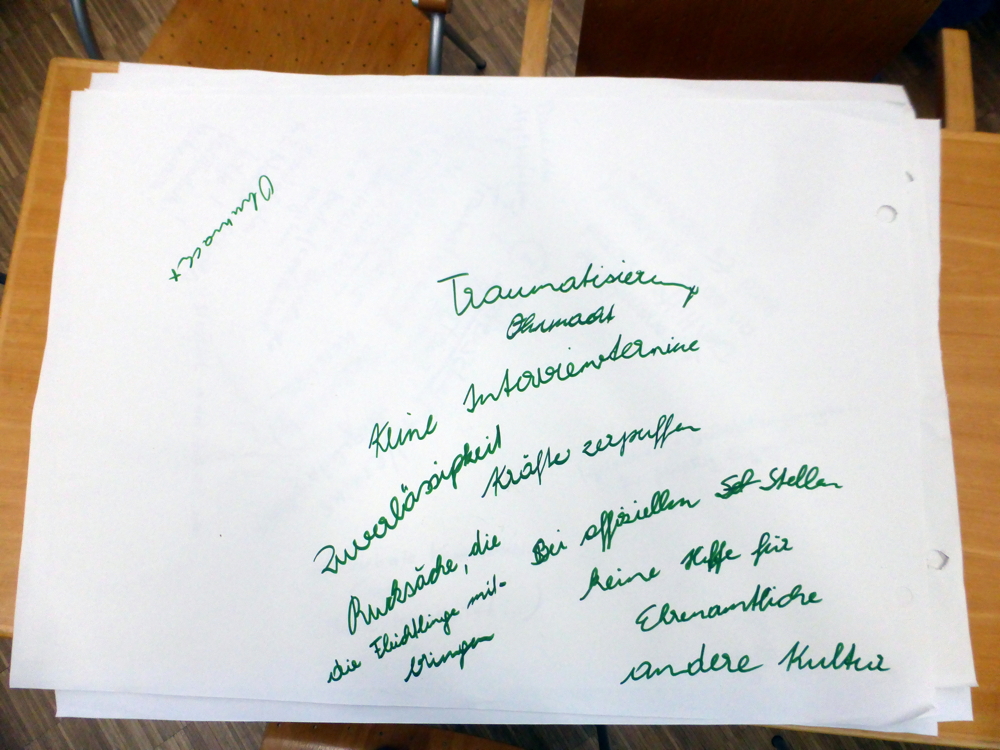 Ohnmacht
Traumatisierung
Ohnmacht
Keine Interviewtermine
Zuverlässigkeit
Kräfte zerpuffen
Rucksäcke, die
die Flüchtlinge mit-
bringen
Bei offiziellen Stellen
keine Hilfe für
Ehrenamtliche
andere Kultur